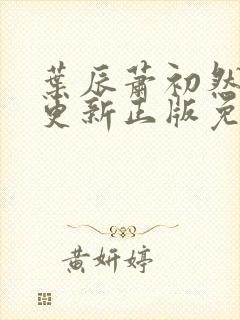 葉辰蕭初然
更新正版免
黄妍婷